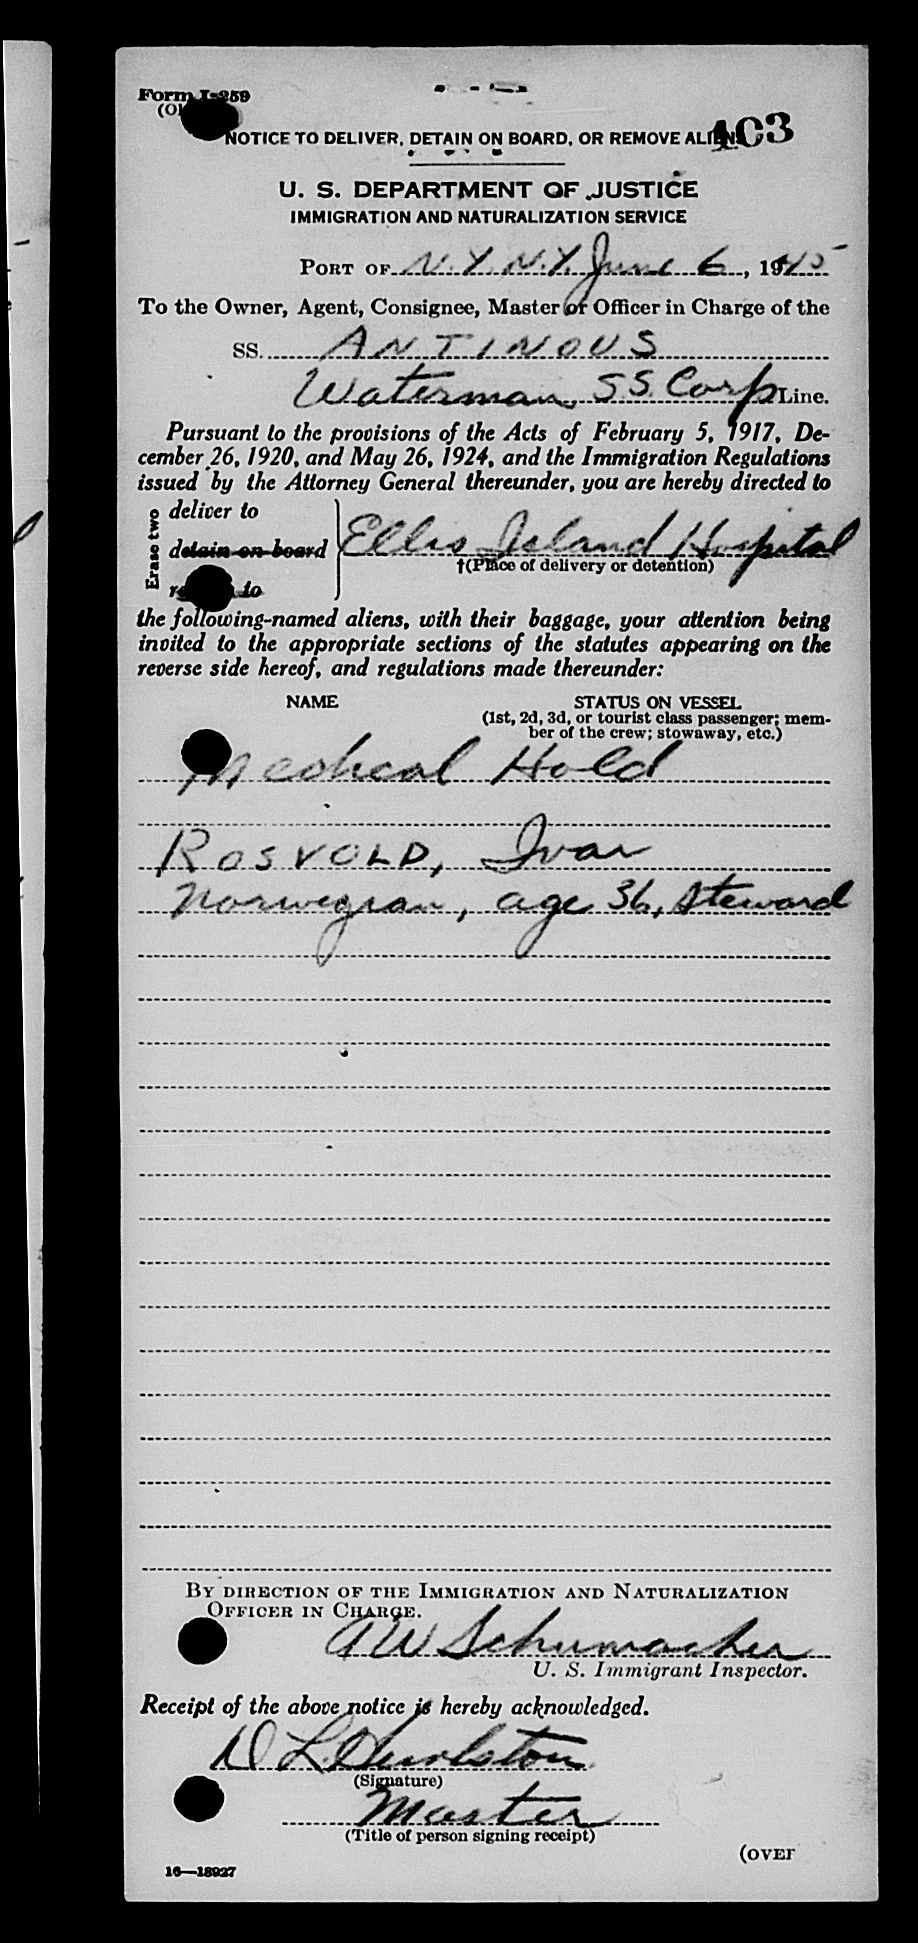 Form I-259
NOTICE TO DELIVER, DETAIN ON BOARD, OR REMOVE ALIENS
403
U. S. DEPARTMENT OF JUSTICE
IMMIGRATION AND NATURALIZATION SERVICE
PORT OF N.Y. N.Y. June 6, 1945
To the Owner, Agent, Consignee, Master or Officer in Charge of the
SS. ANTINOUS
Waterman S S. Corp Line.
Pursuant to the provisions of the Acts of February 5, 1917, De-
cember 26, 1920, and May 26, 1924, and the Immigration Regulations
issued by the Attorney General thereunder, you are hereby directed to
Erase two
deliver to
detain on board
to
Ellis Island Hospital
†(Place of delivery or detention)
the following-named aliens, with their baggage, your attention being
invited to the appropriate sections of the statutes appearing on the
reverse side hereof, and regulations made thereunder:
NAME
STATUS ON VESSEL
(1st, 2d, 3d, or tourist class passenger; mem-
ber of the crew; stowaway, etc.)
Medical Hold
ROSVOLD, Ivar
Norwegian, age 36, Steward
BY DIRECTION OF THE IMMIGRATION AND NATURALIZATION
OFFICER IN CHARGE.
A W Schumacher
U. S. Immigrant Inspector.
Receipt of the above notice is hereby acknowledged.
D L
(Signature)
Master
(Title of person signing receipt)
(OVER
16—18927